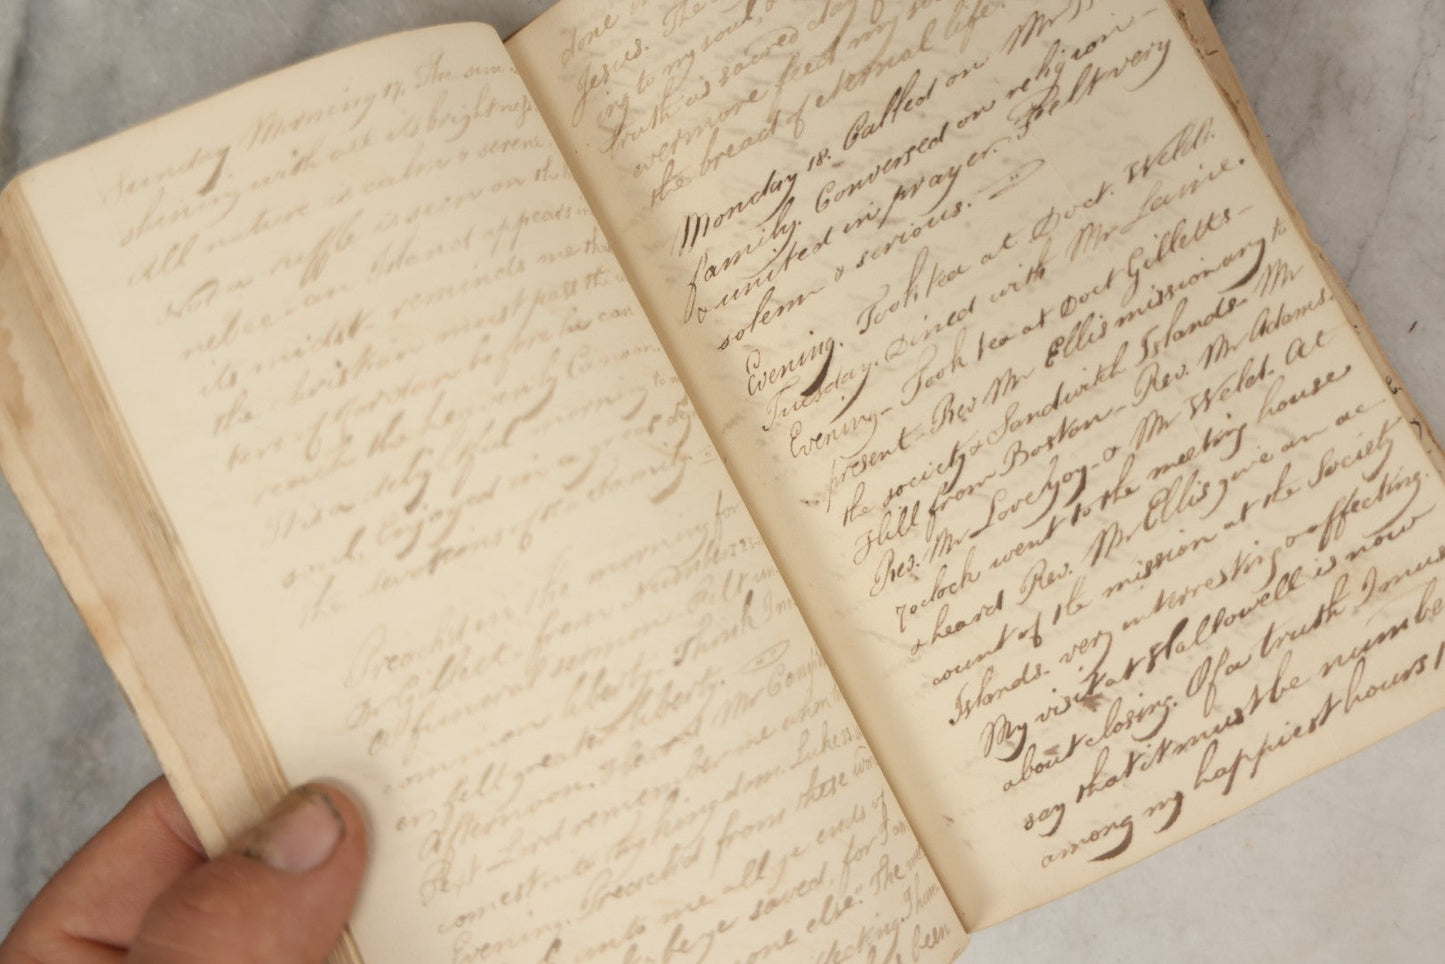 Sunday Morning 17. The sun
shining with all its brightness
All nature is calm & serene
Not a ruffle is seen on the
an Island appears in
its midst - reminds me that
the christian must pass the
of Jordan before he can
reach the heavenly Canaan.
It is a delightful morning to
soul. Engaged in a great
the devotions of the family.
Preach'd in the morning for
Dr. Gillet - from Numbers 23
a funeral sermon. Felt un
common liberty. Think I
felt greater liberty.
Afternoon. Heard Mr
Text - Lord remember me when thou
comest into thy kingdom. Luke 23
Evening. Preached from these words
unto me all ye ends of
be ye saved, for I am
none else." The
affecting. I
been
done in
Jesus. The
ing to my soul,
truth is sacred day
evermore feed my
the bread of eternal life.
Monday 18. Called on Mr
family. Conversed on religion
& united in prayer. - Felt very
solemn & serious.
Evening. Took tea at Doct. Weld's.
Tuesday. Dined with Mr Laine.
Evening - Took tea at Doct Gilletts -
present - Rev Mr Ellis missionary to
the society & Sandwich Islands - Mr
Hill from Boston - Rev. Mr Adams.
Rev. Mr Lovejoy - & Mr Weld. At
7 oclock went to the meeting house
& heard Rev. Mr Ellis give an ac-
count of the mission at the Society
Islands. very interresting & affecting.
My visit at Hallowell is now
about closing. Of a truth I must
say that it must be number
among my happiest hours